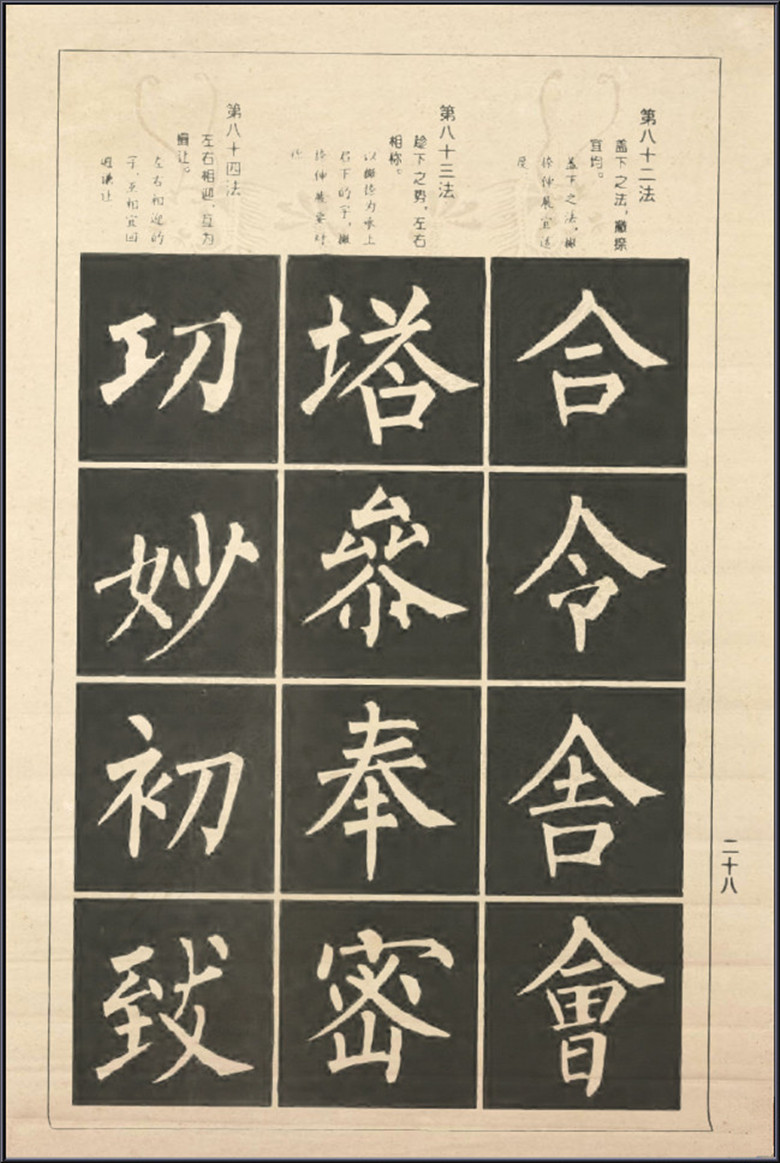 第八十二法
盖下之法,撇捺
宜均。
盖下之法,撇
捺伸展宜适
度
合
令
舍
會
第八十三法
趁下之势,左右
相称。
以撇捺为承上
召下的字,撇
捺伸展要对
称
塔
參
奉
密
第八十四法
左右相迎,互为
揖让。
左右相迎的
字,要相宜回
避谦让
功
妙
初
致
二十八